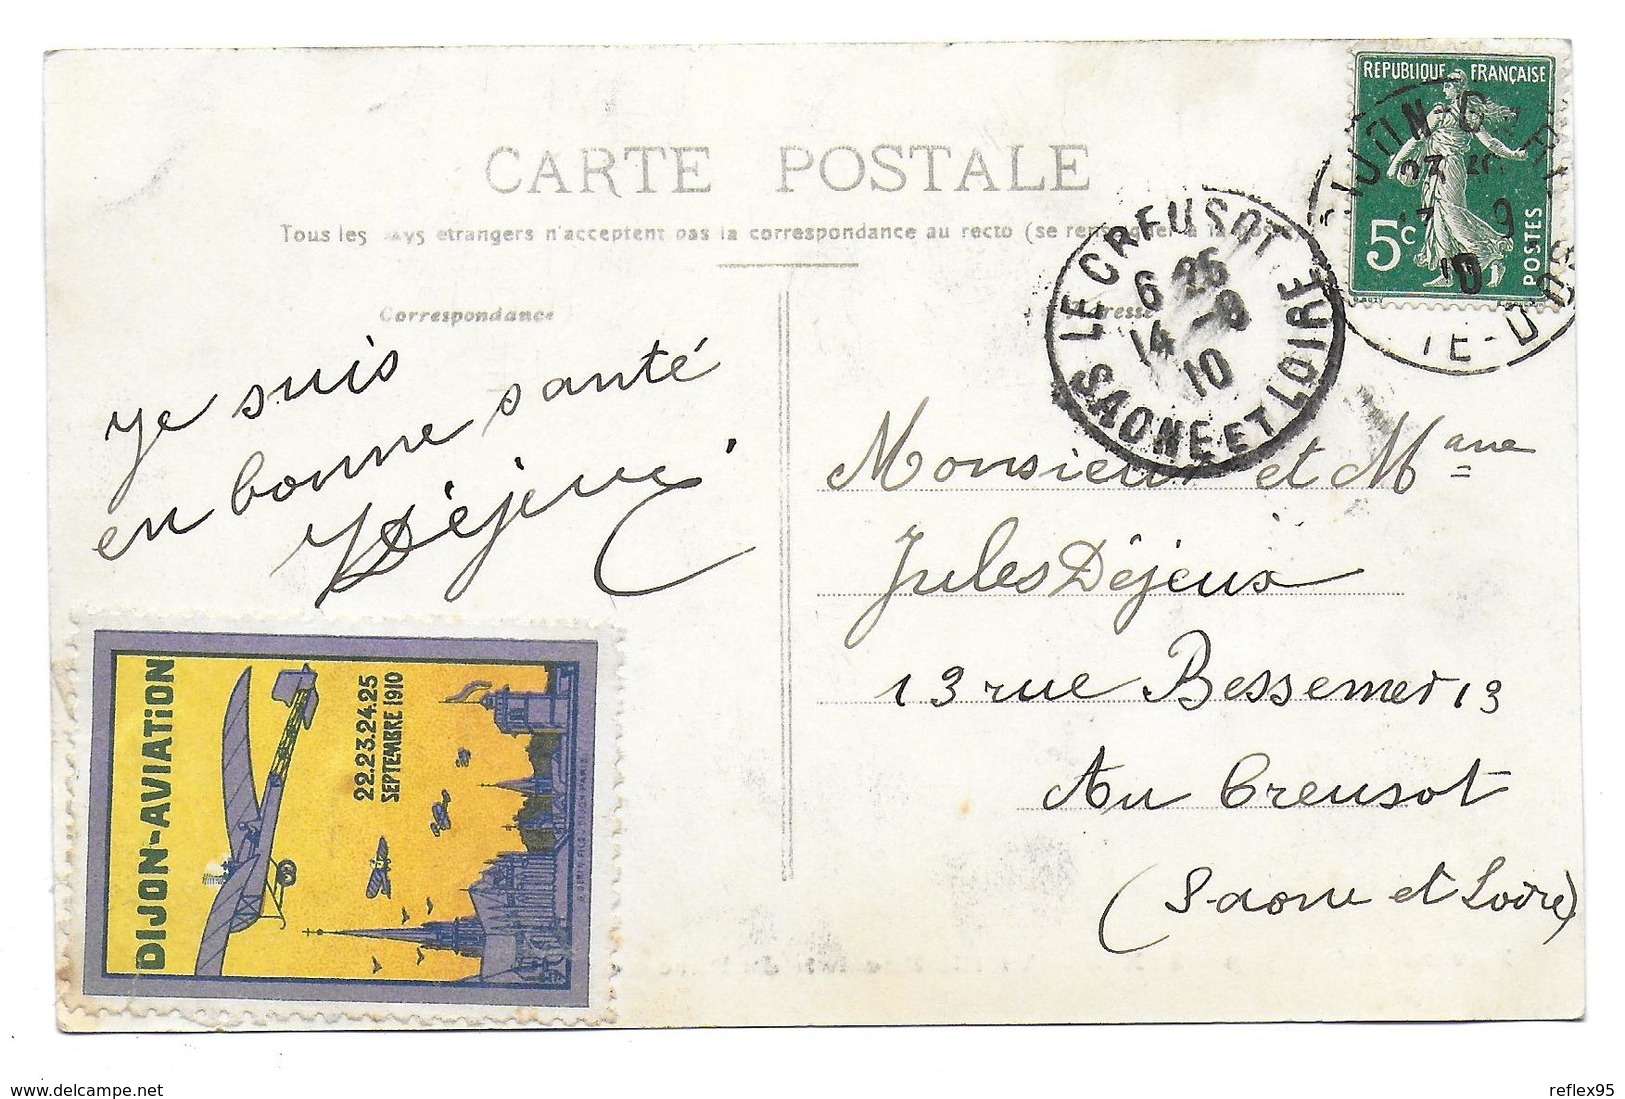 CARTE POSTALE
Tous les pays etrangers n'acceptent pas la correspondance au recto (se renseigner à la Poste)
Correspondance
Adresse
REPUBLIQUE FRANÇAISE
5c
POSTES
LE CREUSOT
6 25
14 -9
10
SAONE ET LOIRE
je suis
en bonne santé
Déjeux
Monsieur et Mme
Jules Déjeux
13 rue Bessemer 13
Au Creusot
(Saone et Loire)
DIJON-AVIATiON
22.23.24.25
SEPTEMBRE 1910
www.delcampe.net
reflex95